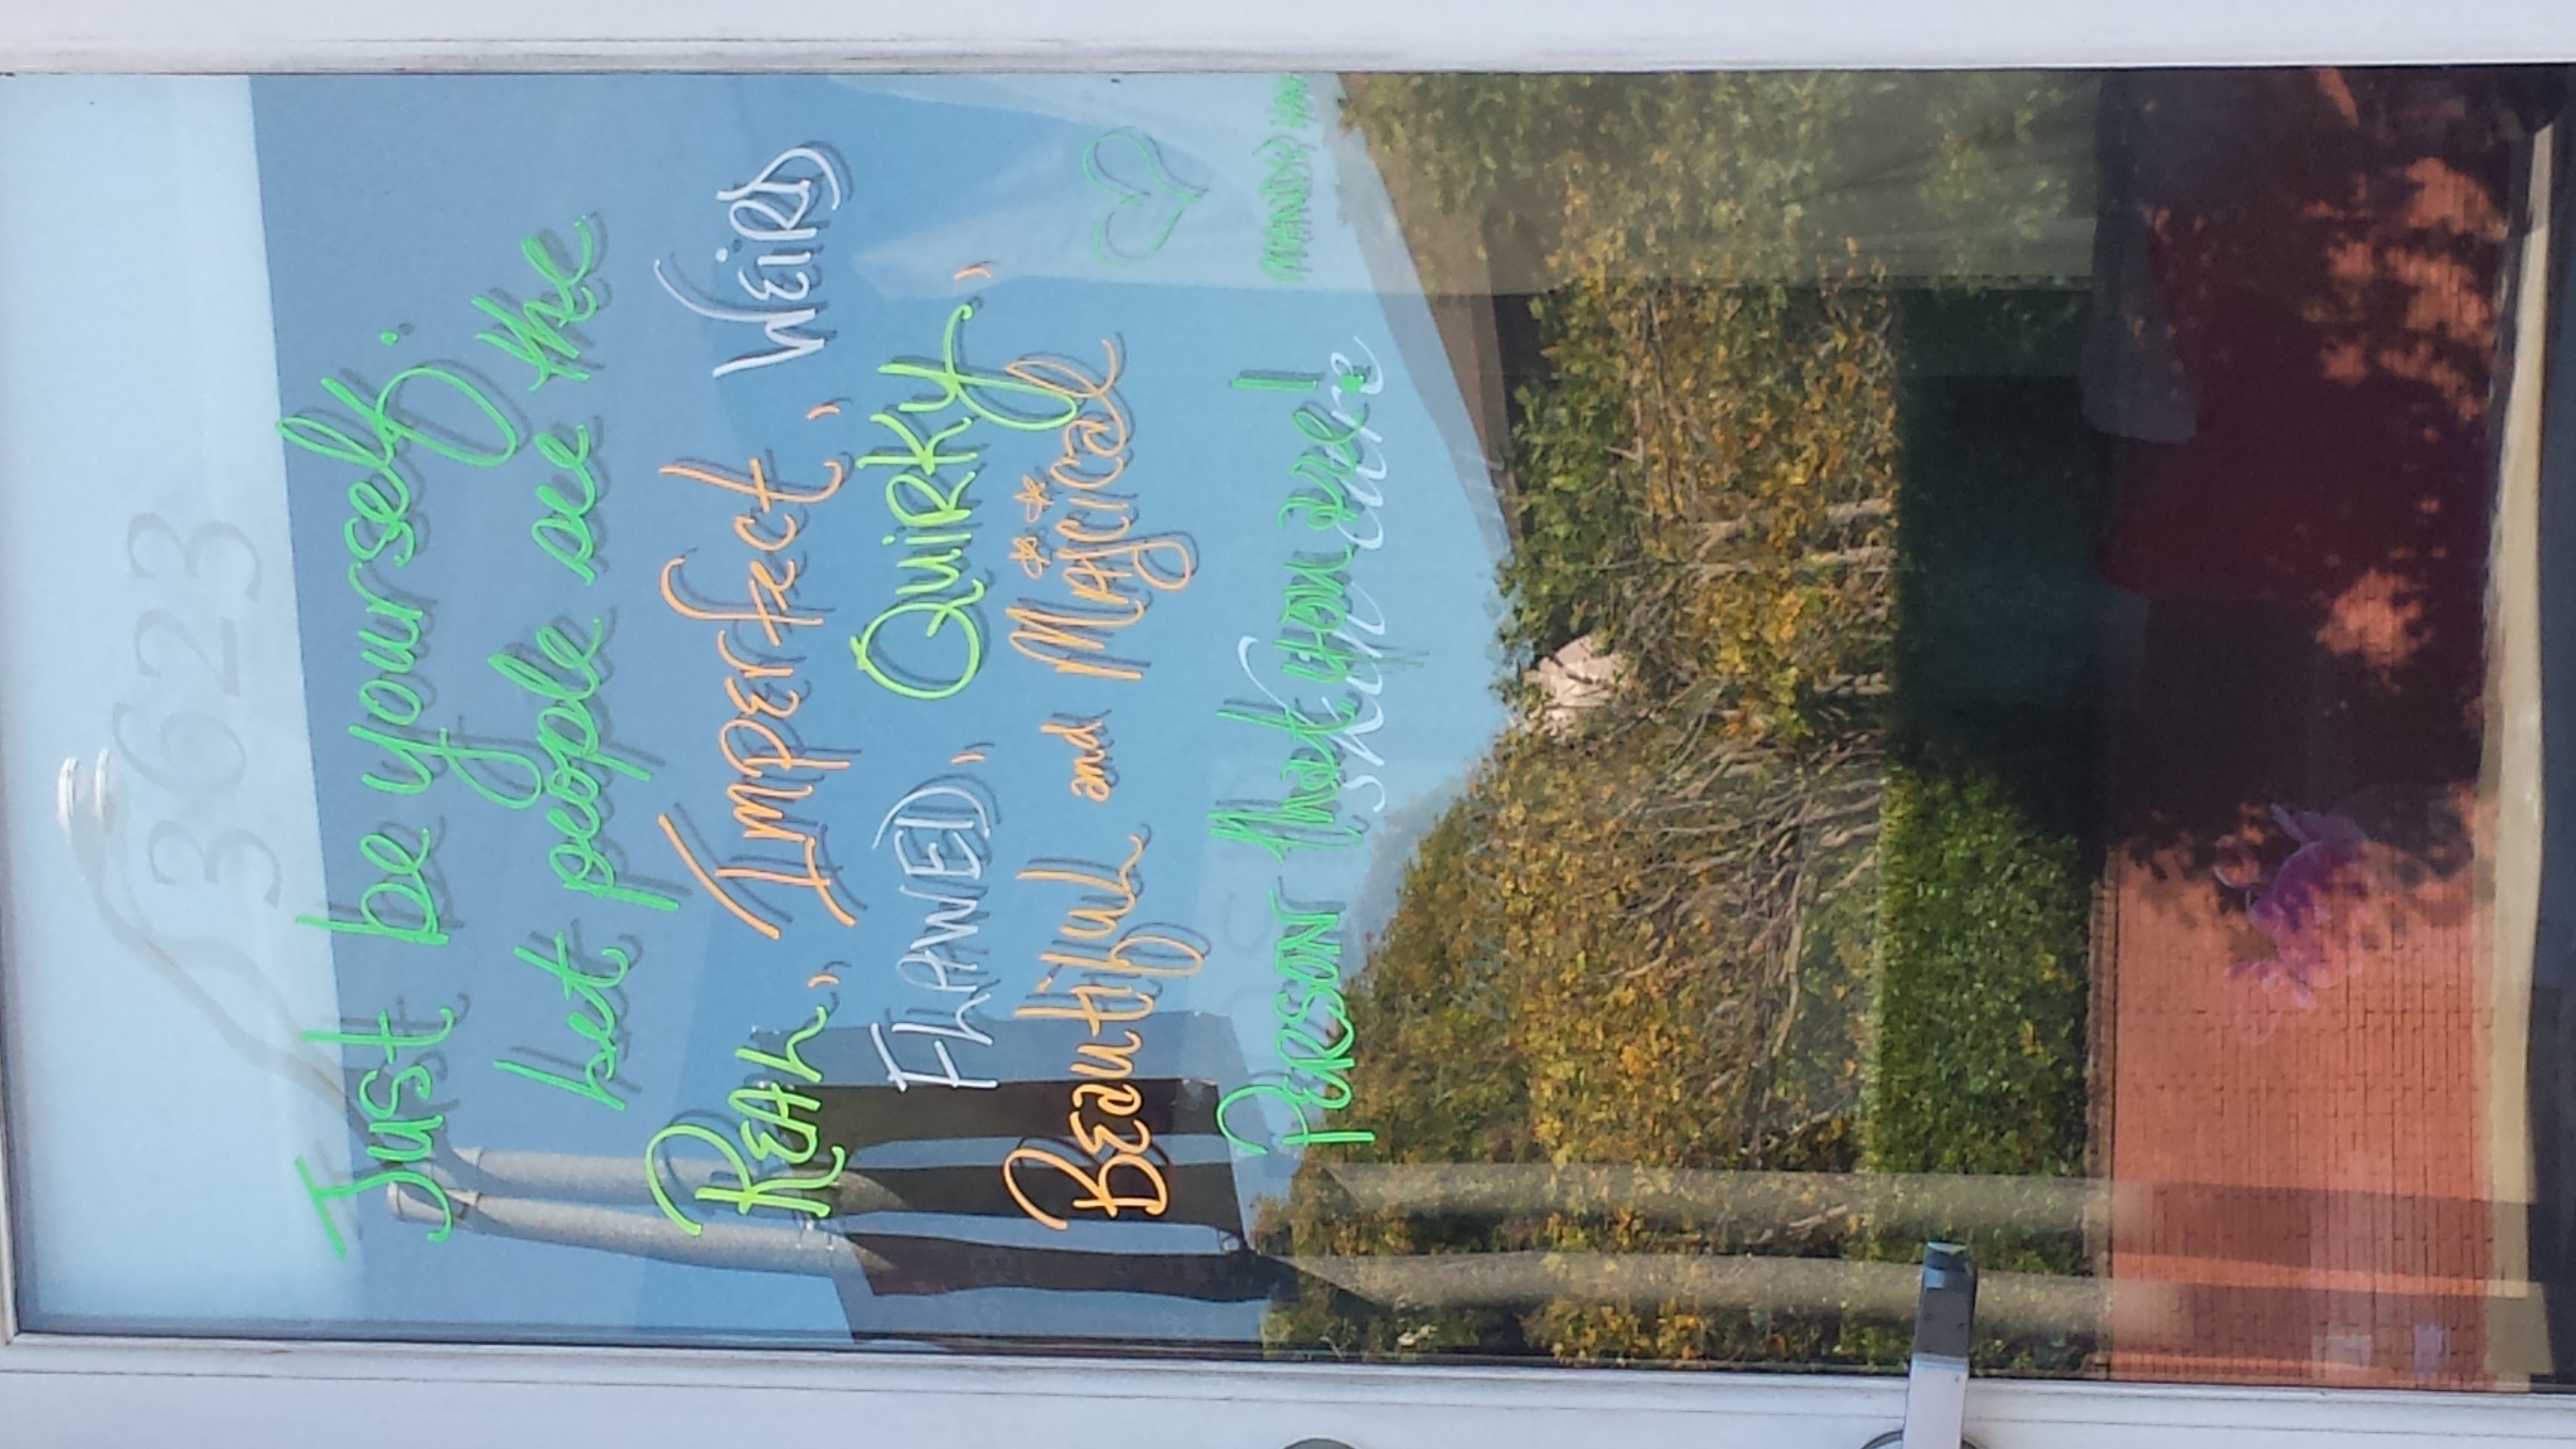 3623
Just be yourself.
Let people see the
REAL, Imperfect, WEiRD
FLAWED, QuiRKy,
BEautifuL and Majcical
PERSON that you are!
skin care